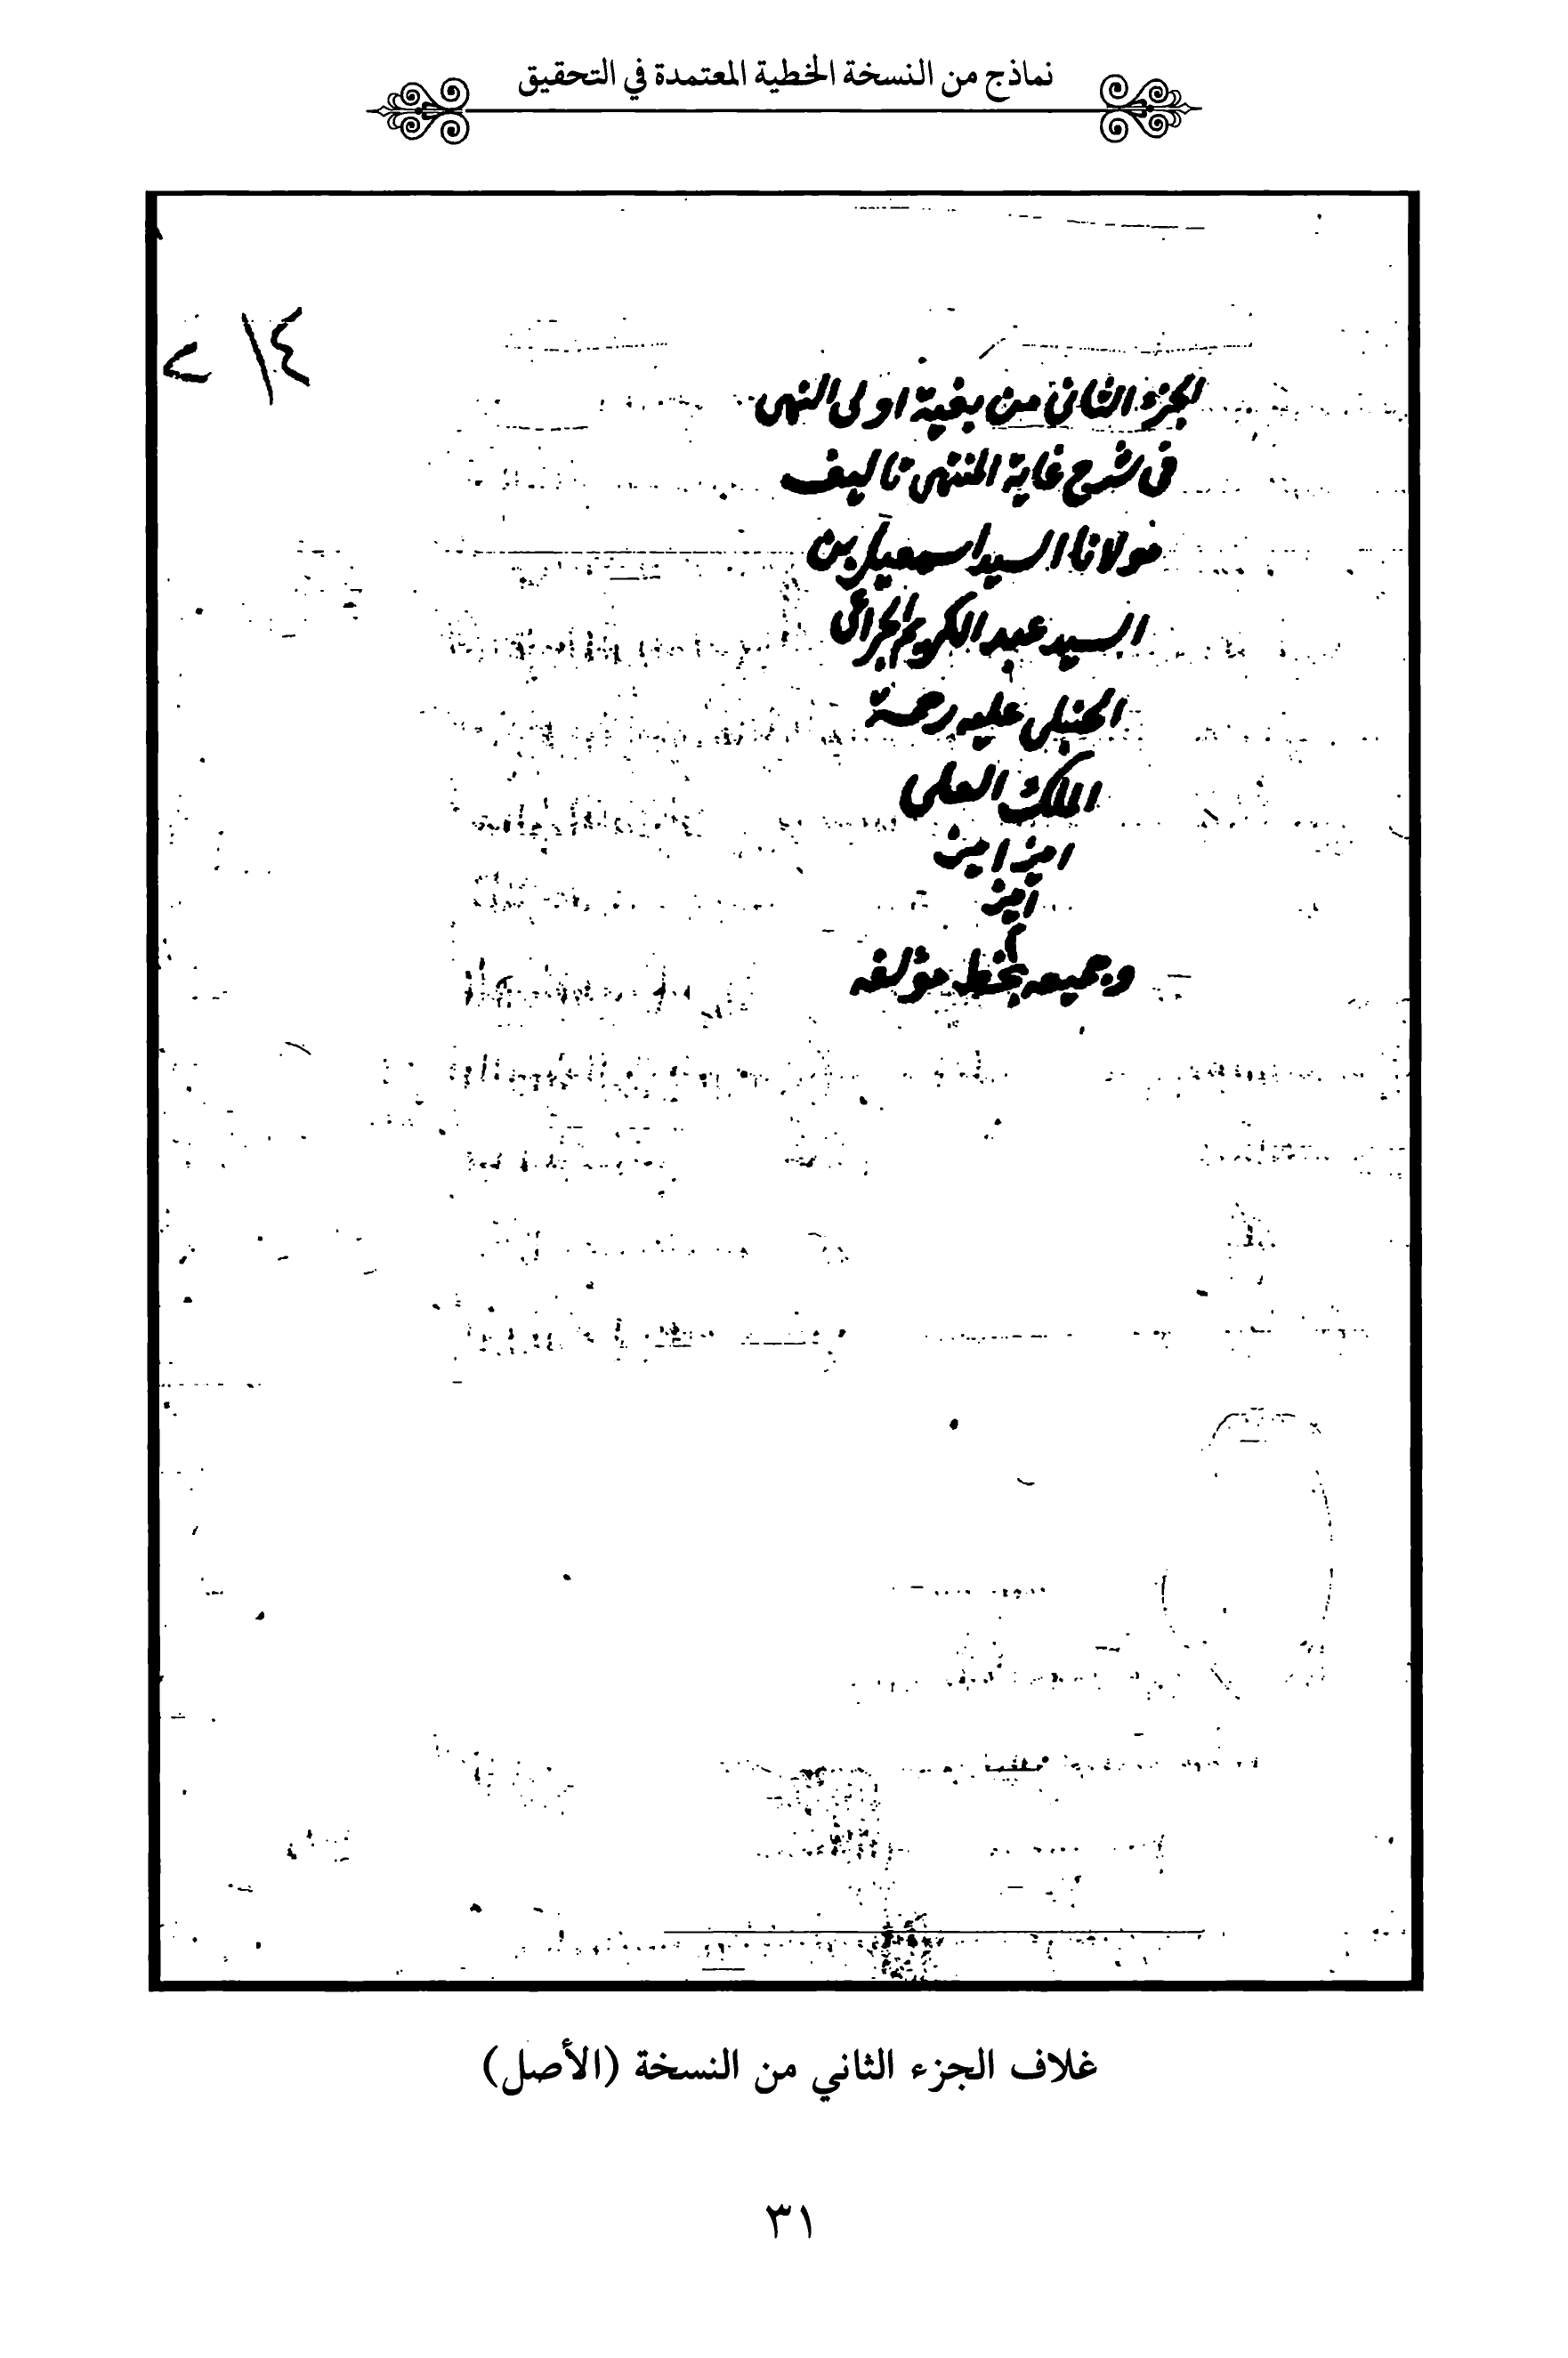 نماذج من النسخة الخطية المعتمدة في التحقيق
الجزء الثاني من بغية اولى النهى
في شرح غاية المنتهى تاليف
مولانا السيد اسمعيل بن
السيد عبد الكريم الجراعي
الحنبلي عليه رحمة
الملك العلي
امين امين
امين
وجميعه بخط مؤلفه
غلاف الجزء الثاني من النسخة (الأصل)
٣١